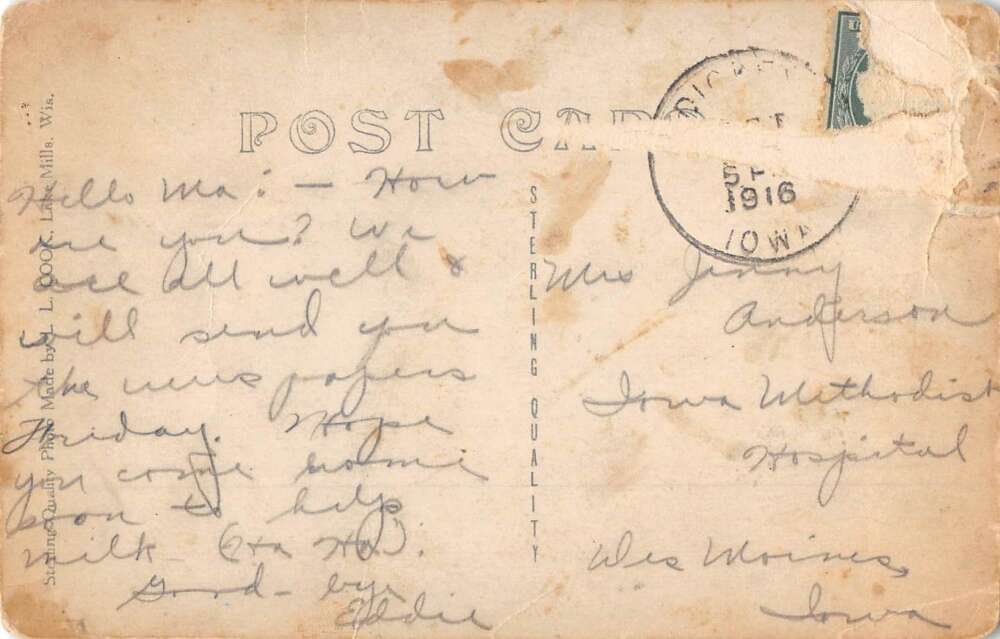 POST CARD
Hello Ma: — How
are you? We
are all well &
will send you
the news papers
Friday. Hope
you come home
soon to help
milk (Ha Ha).
Good-bye
Eddie
STERLING QUALITY
Sterling Quality Photo Made by L. L. COOK, Lake Mills, Wis.
SEP
1916
IOWA
Mrs Jenny
Anderson
Iowa Methodist
Hospital
Des Moines,
Iowa